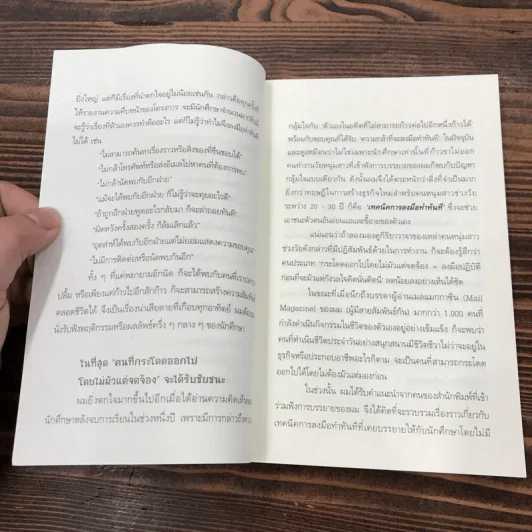 ยิ่งใหญ่ แต่ก็มีเรื่องที่น่าตกใจอยู่ไม่น้อยเช่นกัน กล่าวคือทุกครั้งที่
ให้รายงานความคืบหน้าของโครงการ จะมีนักศึกษาจำนวนมากที่แม้
จะรู้ว่าเรื่องที่ตัวเองควรทำคืออะไร แต่ก็ไม่รู้ว่าทำไมจึงลงมือทำทันที
ไม่ได้ เช่น
"ไม่สามารถค้นหาเรื่องราวหรือสิ่งของที่ชื่นชอบได้"
"ไม่กล้าโทรศัพท์หรือส่งอีเมลไปหาคนที่ต้องการพบ"
"ไม่กล้านัดพบกับอีกฝ่าย"
"แม้จะได้พบกับอีกฝ่าย ก็ไม่รู้ว่าจะคุยอะไรดี"
"ถ้าถูกอีกฝ่ายพูดอะไรกลับมา ก็จะล่าถอยทันที"
"ผิดหวังครั้งสองครั้ง ก็ล้มเลิกแล้ว"
"อุตส่าห์ได้พบกับอีกฝ่ายแต่ไม่ยอมแสดงความขอบคุณ"
"ไม่มีการติดต่อหรือนัดพบกันอีก"
ทั้ง ๆ ที่แค่พยายามอีกนิด ก็จะได้พบกับคนที่เราปลาบ
ปลื้ม หรือเพียงแค่ก้าวไปอีกสักก้าว ก็จะสามารถสร้างความสัมพันธ์
ตลอดชีวิตได้ จึงเป็นเรื่องน่าเสียดายที่เกือบทุกอาทิตย์ ผมต้อง
นั่งรับฟังพฤติกรรมหรือผลลัพธ์ครึ่ง ๆ กลาง ๆ ของนักศึกษา
ในที่สุด "คนที่กระโดดออกไป
โดยไม่มัวแต่จดจ้อง" จะได้รับชัยชนะ
ผมยิ่งตกใจมากขึ้นไปอีกเมื่อได้อ่านความคิดเห็นของ
นักศึกษาหลังจบการเรียนในช่วงหนึ่งปี เพราะมีการกล่าวถึง
กลุ้มใจกับ 'ตัวเองในอดีตที่ไม่สามารถก้าวต่อไปอีกหนึ่งก้าวได้'
พร้อมกับขอบคุณที่ได้รับ 'ความกล้าที่จะลงมือทำทันที' ในปัจจุบัน
และดูเหมือนว่าไม่ใช่เฉพาะนักศึกษาเท่านั้นที่ก้าวขาไม่ออก
คนทำงานวัยหนุ่มสาวที่เข้าฟังการบรรยายของผมก็พบกับปัญหา
กลุ้มใจแบบเดียวกัน ดังนั้นผมจึงได้ตระหนักว่าสิ่งที่จำเป็นมาก
ยิ่งกว่าทฤษฎีในการสร้างธุรกิจใหม่สำหรับคนหนุ่มสาวช่วงวัย
ระหว่าง 20 - 30 ปี ก็คือ 'เทคนิคการลงมือทำทันที' ซึ่งจะช่วย
เอาชนะตัวตนอันอ่อนแอและขี้อายของตัวเอง
แน่นอนว่าถ้าลองมองดูกิริยาวาจาของเหล่าคนหนุ่มสาว
ช่วงวัยดังกล่าวที่มีปฏิสัมพันธ์ด้วยในการทำงาน ก็จะต้องรู้สึกว่า
คนประเภท "กระโดดออกไปโดยไม่มัวแต่จดจ้อง = ลงมือปฏิบัติ
ก่อนที่จะมัวแต่กังวลใจคิดนั่นคิดนี่" ลดน้อยลงอย่างเห็นได้ชัด
ในขณะที่เมื่อนึกถึงบรรดาผู้อ่านเมลแมกกาซีน (Mail
Magazine) ของผม (ผู้มีสายสัมพันธ์กัน) มากกว่า 1,000 คนที่
กำลังดำเนินกิจกรรมในชีวิตของตัวเองอยู่อย่างเข้มแข็ง ก็จะพบว่า
คนที่ดำเนินชีวิตประจำวันอย่างสนุกสนานมีชีวิตชีวาไม่ว่าจะอยู่ใน
ธุรกิจหรือประกอบอาชีพอะไรก็ตาม จะเป็นคนที่สามารถกระโดด
ออกไปได้โดยไม่ต้องมัวแต่มองก่อน
ในช่วงนั้น ผมได้รับคำแนะนำจากคนของสำนักพิมพ์ที่เข้า
ร่วมฟังการบรรยายของผม จึงได้คิดที่จะรวบรวมเรื่องราวเกี่ยวกับ
เทคนิคการลงมือทำทันทีที่เคยบรรยายให้กับนักศึกษาโดยไม่มี